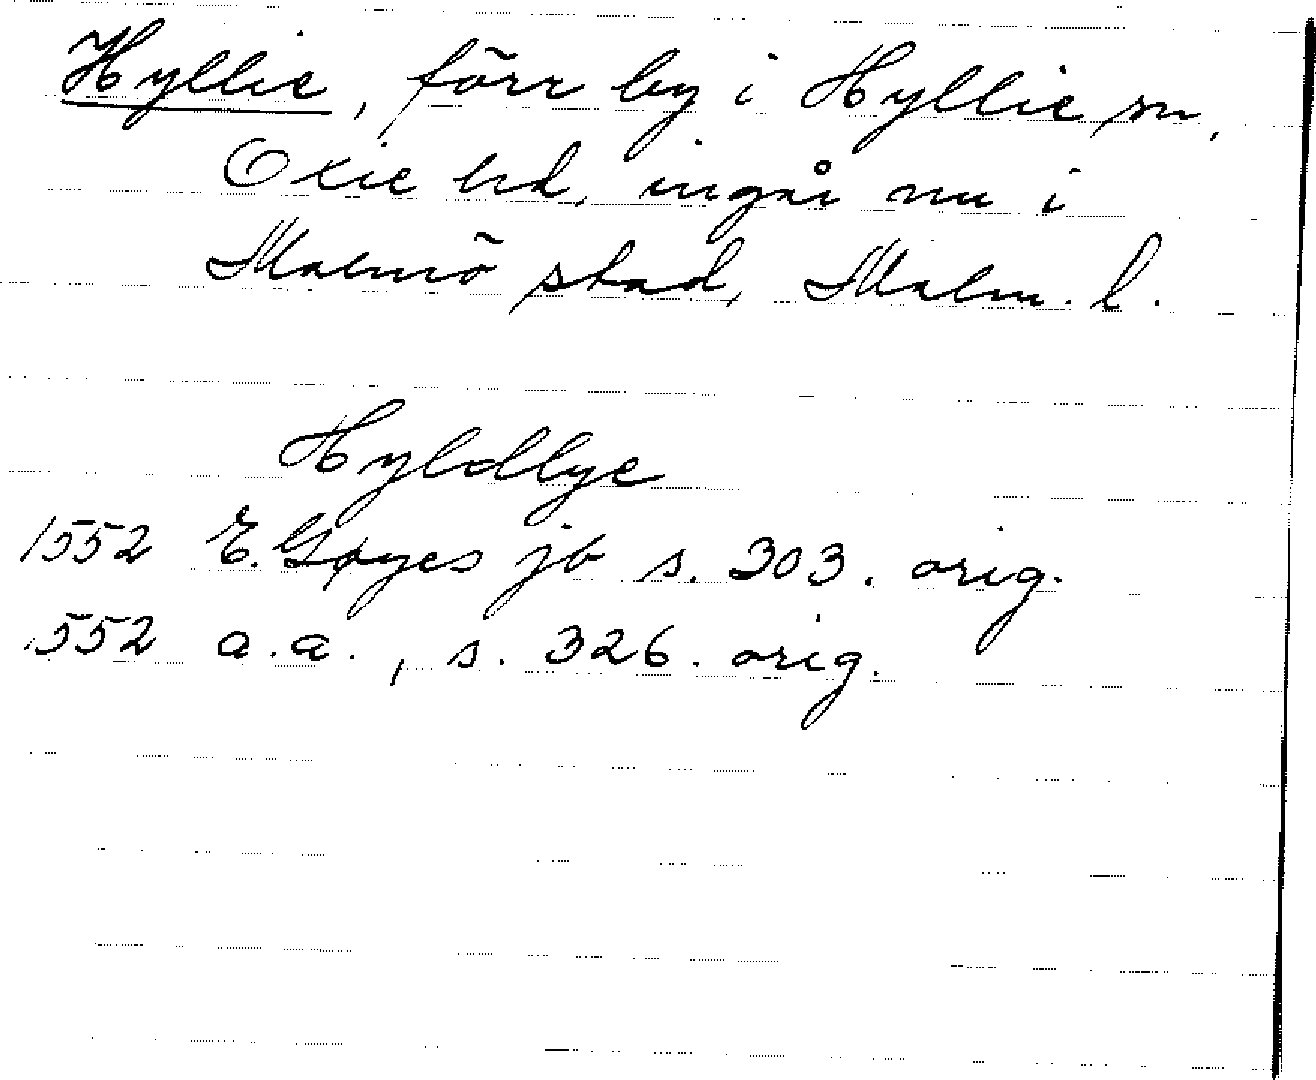 Hyllie, förr by i Hyllie sn,
Oxie hd, ingår nu i
Malmö stad, Malm. l.
Hyldlye
1552 E. Gøyes jb s. 303. orig.
1552 a.a., s. 326. orig.